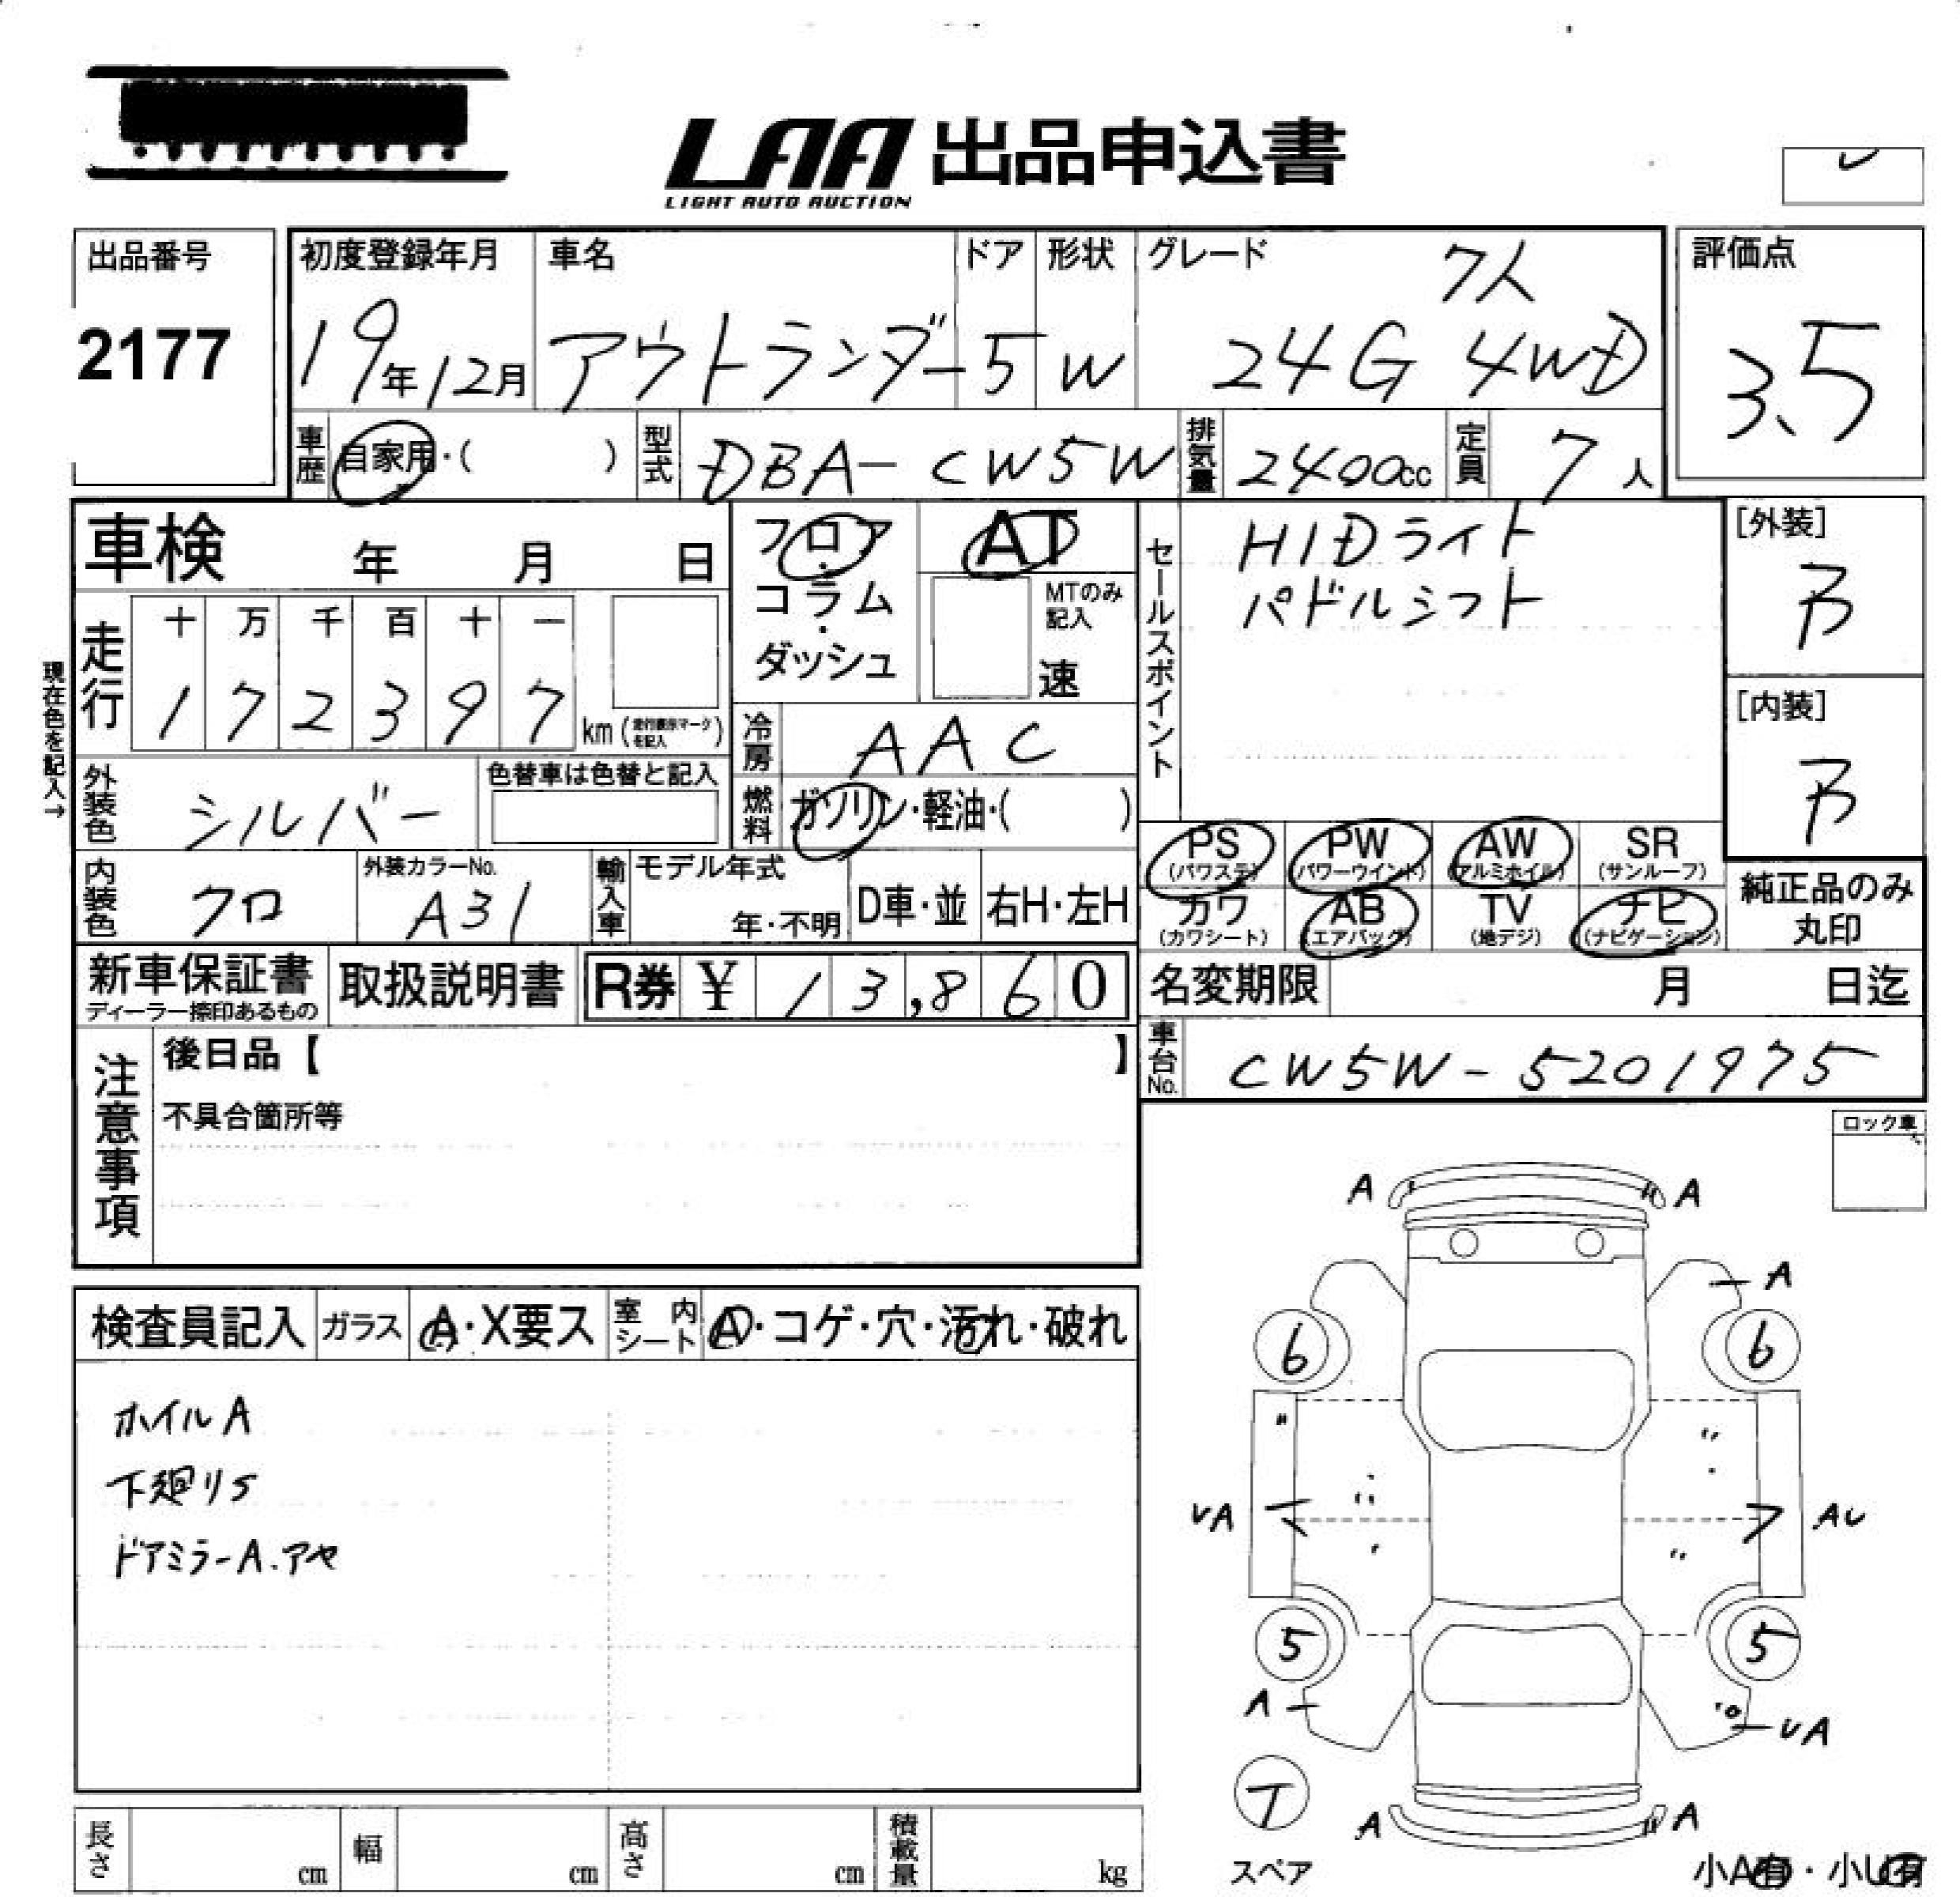 LAA 出品申込書
LIGHT AUTO AUCTION
出品番号
2177
初度登録年月
19年12月
車名
アウトランダー
ドア
5
形状
W
グレード
7人
24G 4WD
評価点
3.5
車歴 自家用・( )
型式 DBA-CW5W
排気量 2400cc
定員 7人
車検 年 月 日
フロア・コラム・ダッシュ
AT
MTのみ記入
速
セールスポイント
HIDライト
パドルシフト
[外装]
B
[内装]
B
現在色を記入→
走行
十 万 千 百 十 一
1 7 2 3 9 7 km (走行表示マークを記入)
冷房 AAC
燃料 ガソリン・軽油・( )
外装色 シルバー
色替車は色替と記入
内装色 クロ
外装カラーNo.
A31
輸入車
モデル年式
年・不明
D車・並
右H・左H
PS (パワステ)
PW (パワーウインド)
AW (アルミホイル)
SR (サンルーフ)
カワ (カワシート)
AB (エアバッグ)
TV (地デジ)
ナビ (ナビゲーション)
純正品のみ
丸印
新車保証書
ディーラー捺印あるもの
取扱説明書
R券 ¥ 13,860
名変期限 月 日迄
車台No. CW5W-5201975
注意事項
後日品【 】
不具合箇所等
ロック車
検査員記入
ガラス A・X要ス
室内シート A・コゲ・穴・汚れ・破れ
ホイルA
下廻りS
ドアミラーA.アヤ
A A
A
6 6
VA AU
5 5
A UA
T
スペア
A A
小A有・小U有
長さ cm
幅 cm
高さ cm
積載量 kg